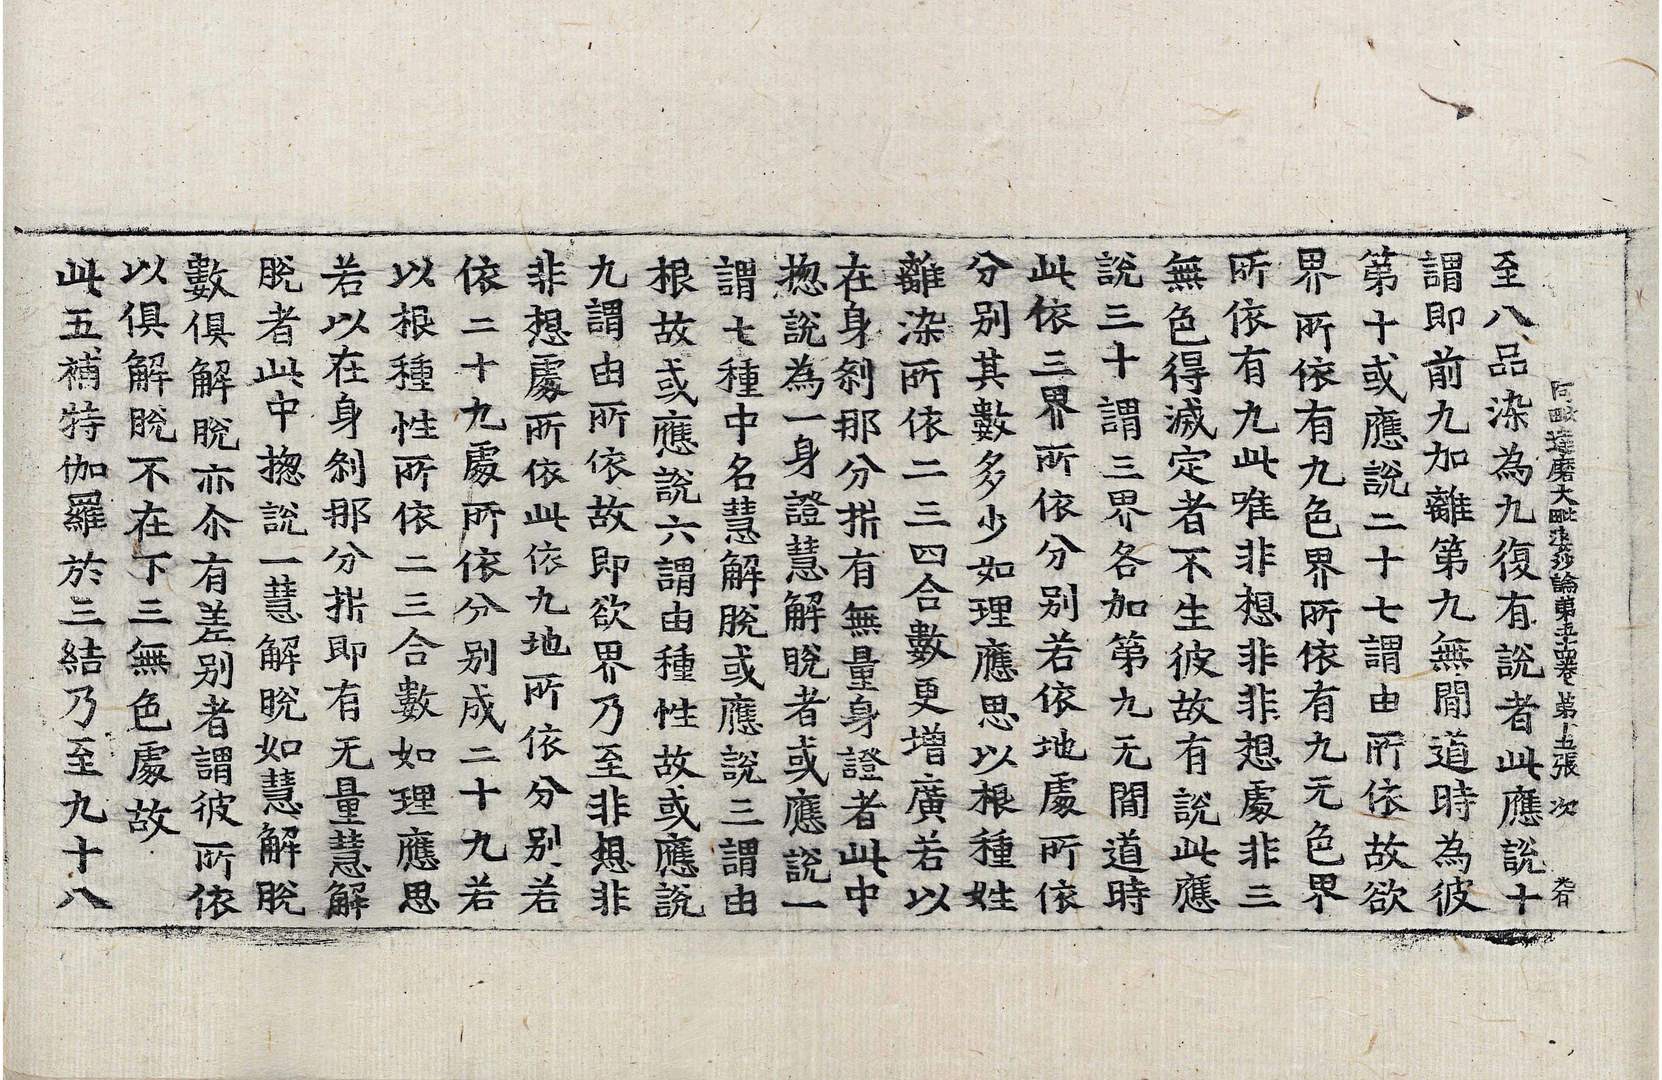 阿毗達磨大毗婆沙論第五十四卷 第十五張 次
至八品染為九復有說者此應說十
謂即前九加離第九無間道時為彼
第十或應說二十七謂由所依故欲
界所依有九色界所依有九无色界
所依有九此唯非想非非想處非三
無色得滅定者不生彼故有說此應
說三十謂三界各加第九无間道時
此依三界所依分別若依地處所依
分別其數多少如理應思以根種姓
離染所依二三四合數更增廣若以
在身刹那分㭊有無量身證者此中
揔說為一身證慧解脫者或應說一
謂七種中名慧解脫或應說三謂由
根故或應說六謂由種性故或應說
九謂由所依故即欲界乃至非想非
非想處所依此依九地所依分別若
依二十九處所依分別成二十九若
以根種性所依二三合數如理應思
若以在身刹那分㭊即有无量慧解
脫者此中揔說一慧解脫如慧解脫
數俱解脫亦尒有差別者謂彼所依
以俱解脫不在下三無色處故
此五補特伽羅於三結乃至九十八